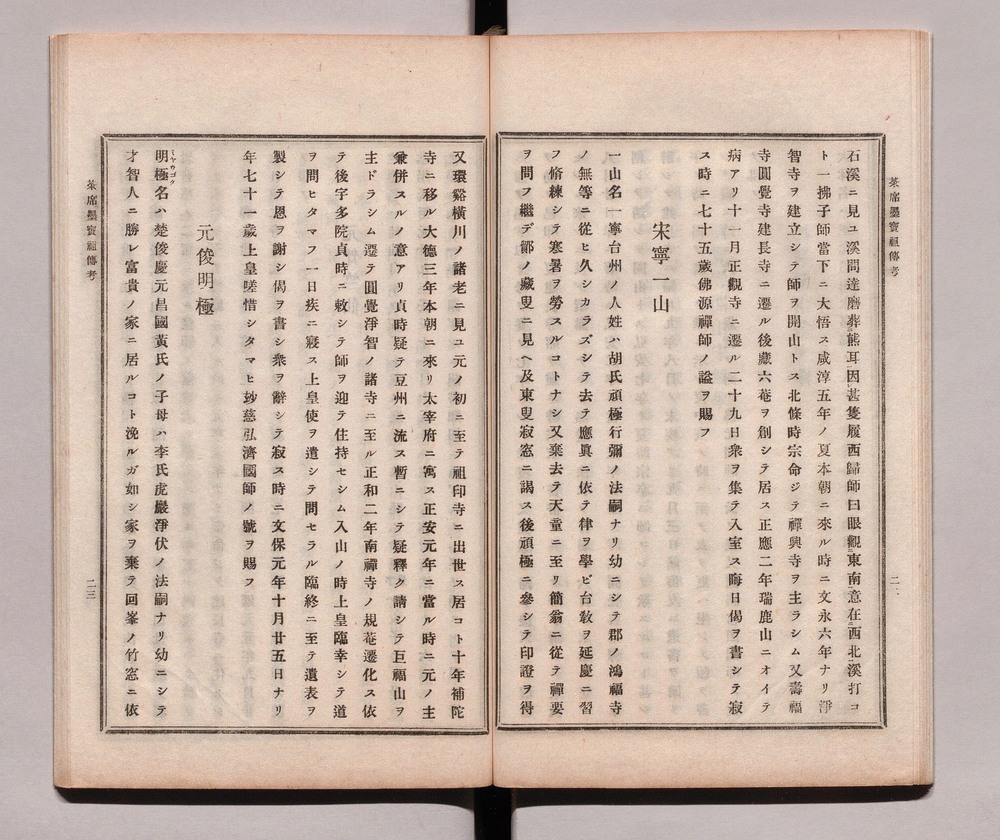 茶席墨寳祖傳考
石溪ニ見ユ溪問達磨葬熊耳因甚隻履西歸師曰眼觀東南意在西北溪打コ
ト一拂子師當下ニ大悟ス咸淳五年ノ夏本朝ニ來ル時ニ文永六年ナリ淨
智寺ヲ建立シテ師ヲ開山トス北條時宗命ジテ禪興寺ヲ主ラシム又壽福
寺圓覺寺建長寺ニ遷ル後藏六菴ヲ創シテ居ス正應二年瑞鹿山ニオイテ
病アリ十一月正觀寺ニ遷ル二十九日衆ヲ集テ入室ス晦日偈ヲ書シテ寂
ス時ニ七十五歲佛源禪師ノ謚ヲ賜フ
宋寧一山
一山名一寧台州ノ人姓ハ胡氏頑極行彌ノ法嗣ナリ幼ニシテ郡ノ鴻福寺
ノ無等ニ從ヒ久シカラズシテ去テ應眞ニ依テ律ヲ學ビ台敎ヲ延慶ニ習
フ脩練シテ寒暑ヲ勞スルコトナシ又棄去テ天童ニ至リ簡翁ニ從テ禪要
ヲ問フ繼デ鄮ノ藏叟ニ見ヘ及東叟寂窓ニ謁ス後頑極ニ參シテ印證ヲ得
又環谿橫川ノ諸老ニ見ユ元ノ初ニ至テ祖印寺ニ出世ス居コト十年補陀
寺ニ移ル大德三年本朝ニ來リ太宰府ニ寓ス正安元年ニ當ル時ニ元ノ主
兼併スルノ意アリ貞時疑テ豆州ニ流ス暫ニシテ疑釋ク請シテ巨福山ヲ
主ドラシム遷テ圓覺淨智ノ諸寺ニ至ル正和二年南禪寺ノ規菴遷化ス依
テ後宇多院貞時ニ敕シテ師ヲ迎テ住持セシム入山ノ時上皇臨幸シテ道
ヲ問ヒタマフ一日疾ニ寢ス上皇使ヲ遣シテ問セラル臨終ニ至テ遺表ヲ
製シテ恩ヲ謝シ偈ヲ書シ衆ヲ辭シテ寂ス時ニ文保元年十月廿五日ナリ
年七十一歲上皇嗟惜シタマヒ玅慈弘濟國師ノ號ヲ賜フ
元俊明極
明極名ハ楚俊慶元昌國黃氏ノ子母ハ李氏虎巖淨伏ノ法嗣ナリ幼ニシテ
ミヤウゴク
才智人ニ勝レ富貴ノ家ニ居ルコト浼ルガ如シ家ヲ棄テ回峯ノ竹窓ニ依
茶席墨寳祖傳考
二三